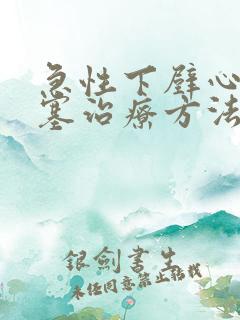 急性下壁心
塞治療方法
銀劍書生
未经同意禁止转载